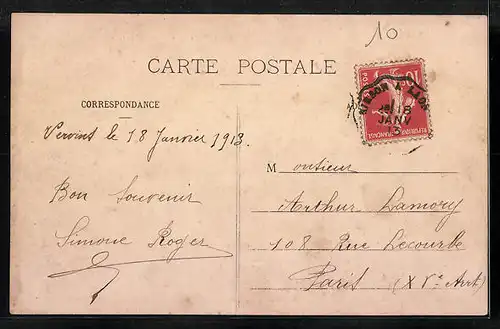 10
CARTE POSTALE
CORRESPONDANCE
Vervins le 18 Janvier 1913.
Bon Souvenir
Simone Roger
Monsieur
Arthur Lamory
108 Rue Lecourbe
Paris (XVe Arrt)
HIRSON A LAON
18
JANV
13
10
POSTES
REPUBLIQUE FRANÇAISE